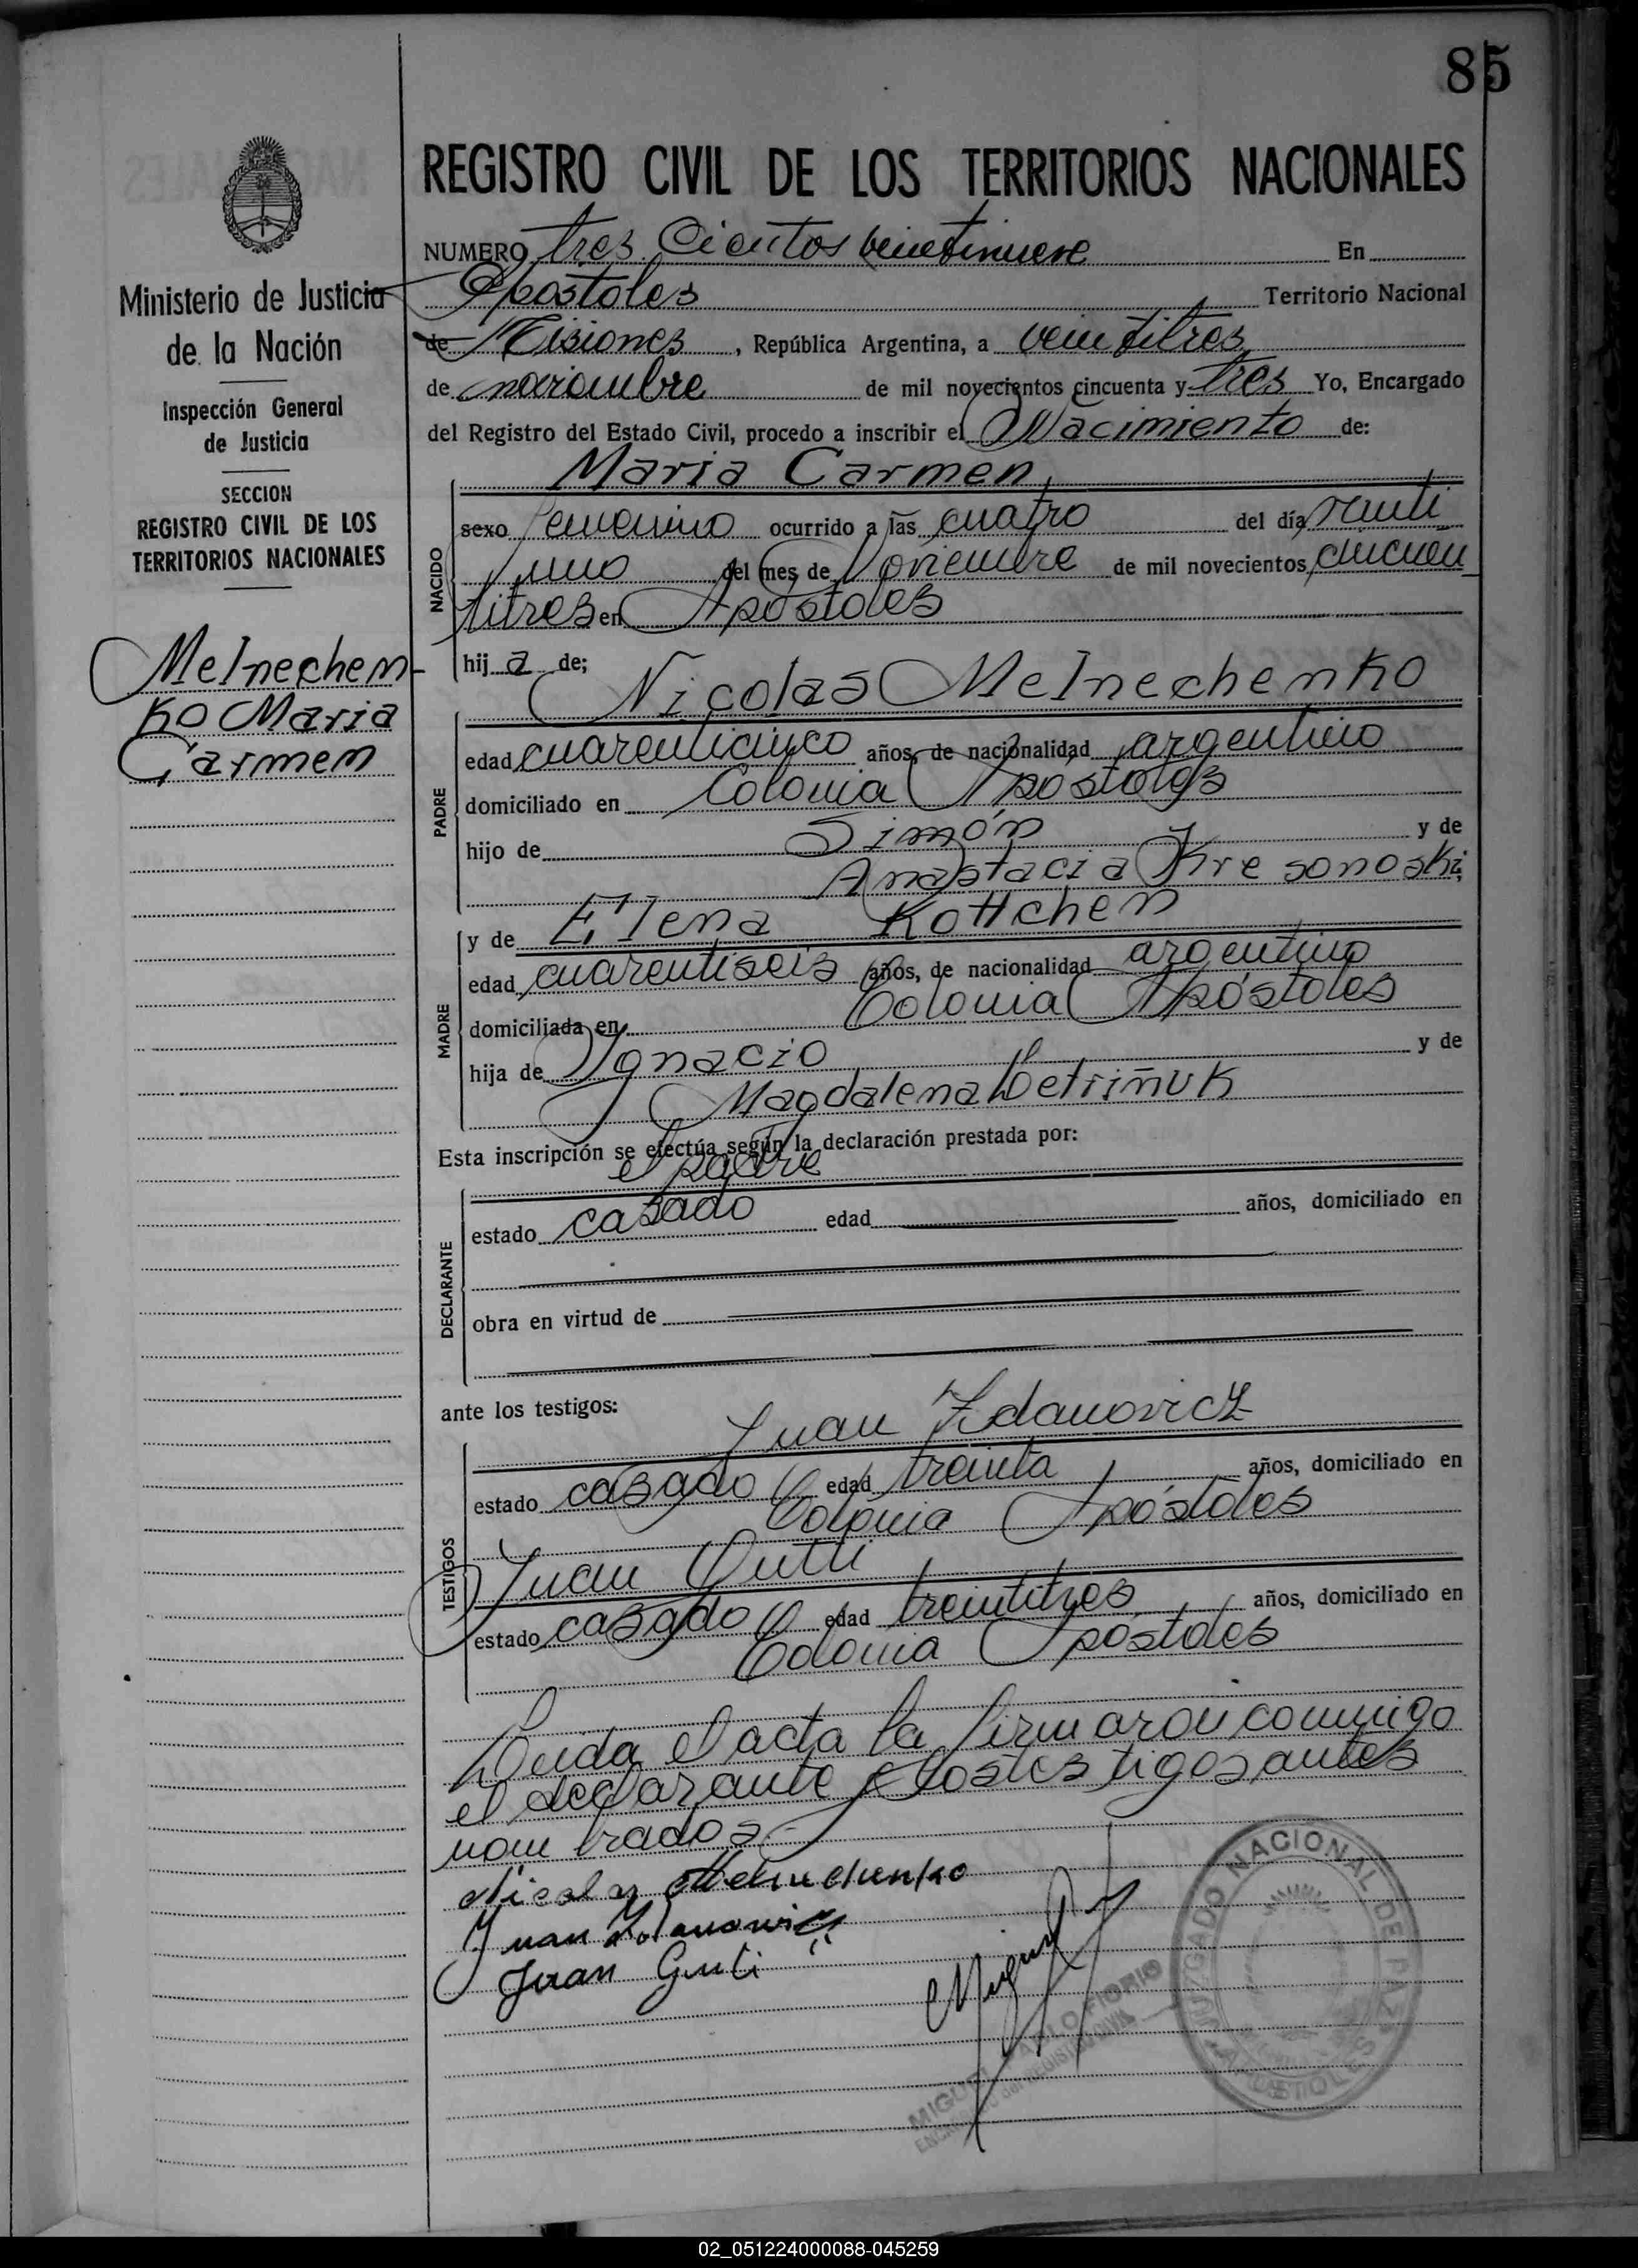 85
REGISTRO CIVIL DE LOS TERRITORIOS NACIONALES
Ministerio de Justicia
de la Nación
Inspección General
de Justicia
SECCION
REGISTRO CIVIL DE LOS
TERRITORIOS NACIONALES
Melnechen-
ko Maria
Carmen
NUMERO tres cientos veinetinueve En
Apostoles Territorio Nacional
de Misiones, República Argentina, a veintitres
de noviembre de mil novecientos cincuenta y tres Yo, Encargado
del Registro del Estado Civil, procedo a inscribir el Nacimiento de:
NACIDO
Maria Carmen
sexo femenino ocurrido a las cuatro del día veinti
uno del mes de Noviembre de mil novecientos cincuen
titres en Apóstoles
hija de;
PADRE
Nicolas Melnechenko
edad cuarenticinco años, de nacionalidad argentino
domiciliado en Colonia Apóstoles
hijo de Simón y de
Anastacia Kresonoski;
MADRE
y de Elena Kottchen
edad cuarentiseis años, de nacionalidad argentino
domiciliada en Colonia Apóstoles
hija de Ignacio y de
Magdalena
Esta inscripción se efectúa según la declaración prestada por:
el padre
DECLARANTE
estado casado edad años, domiciliado en
obra en virtud de
ante los testigos:
TESTIGOS
Juan Zdanovicz
estado casado edad treinta años, domiciliado en
Colonia Apóstoles
Juan
estado casado edad treintitres años, domiciliado en
Colonia Apóstoles
Leida el acta la firmaron conmigo
el declarante y los testigos antes
nombrados.-
Nicolas Melnechenko
Juan Zdanowicz
Juan
Miguel
MIGUEL PABLO FIORIO
ENCARGADO del REGISTRO CIVIL
JUZGADO NACIONAL DE PAZ
APOSTOLES
02_051224000088-045259